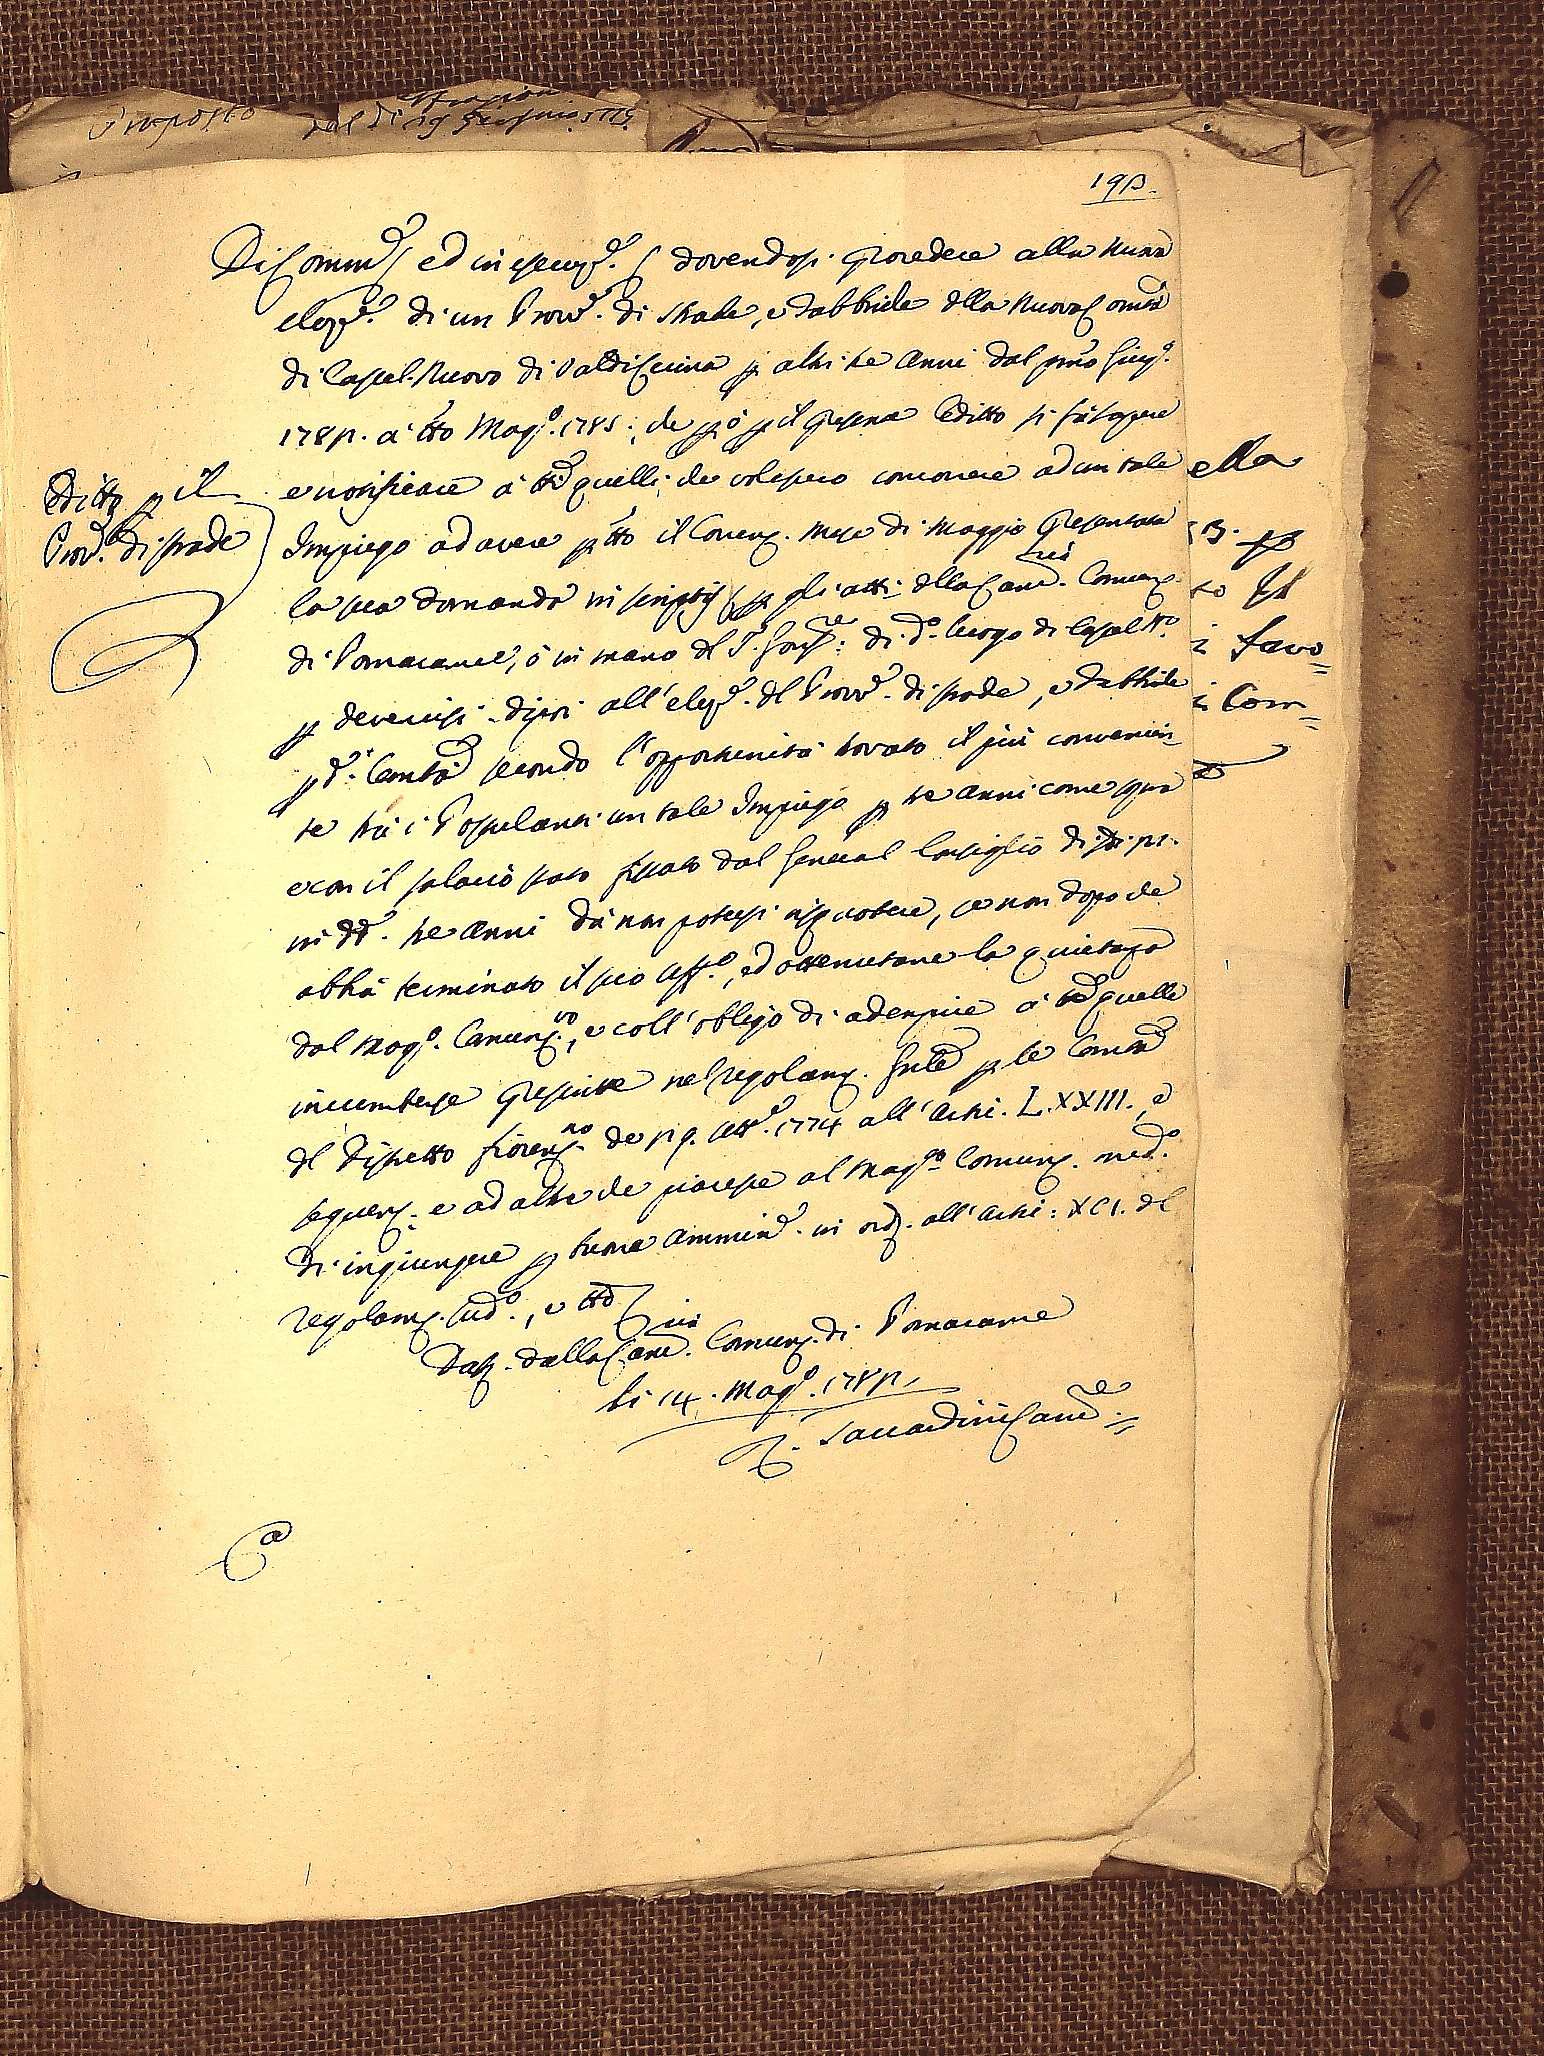 Imposto dal di 29
193.
Di Comm.e ed in esecuz.e dovendosi procedere alla nuova
elez.e di un Provv.e di Strade, e Fabbriche della Nuova Comtà
di Castel-Nuovo di Valdicecina p altri tre Anni dal pmo Giug.o
1782. a tto Magg.o 1785; che però p il presente Editto si fà sapere
e notificare à tti quelli, che volessero concorrere ad un tale
Impiego ad avere p tto il Corren. mese di Maggio presentata
la sua domanda in scriptis p gli atti della Canc.ria Comun.
di Pomarance, ò in mano del di d.o luogo di Castel N.o
p devenirsi dipoi all'elez.e del Provv.e di strade, e Fabbriche
p d.a Comtà secondo l'opportunità trovato il più convenien=
te trà i Postulanti un tale Impiego p tre anni come sopra
e con il salario stato fissato dal General Consiglio di
in d.i tre Anni da non potersi riscuotere, se non dopo che
abbia terminato il suo Uff.o, ed ottenutane la quietanza
dal Mag.o Comun.vo, e coll'obbligo di adempire à tte quelle
incumbenze prescritte nel regolam. Gnle p le Comtà
del Distretto Fioren.no de 29. Sett.e 1774 all'Artic. LXXIII., e
seguen. e ad altre che piacesse al Mag.to Comun. med.o
di ingiungere p buona Ammin.e in ord. all'Artic: XCI. del
regolam. sud.o, e tto
Dat. dalla Canc.ria Comun. di Pomarance
li 14. Magg.o 1782.
Canc.re
Editto p il
Provv.e di strade
ella
3. p
to
i favo=
i Com=